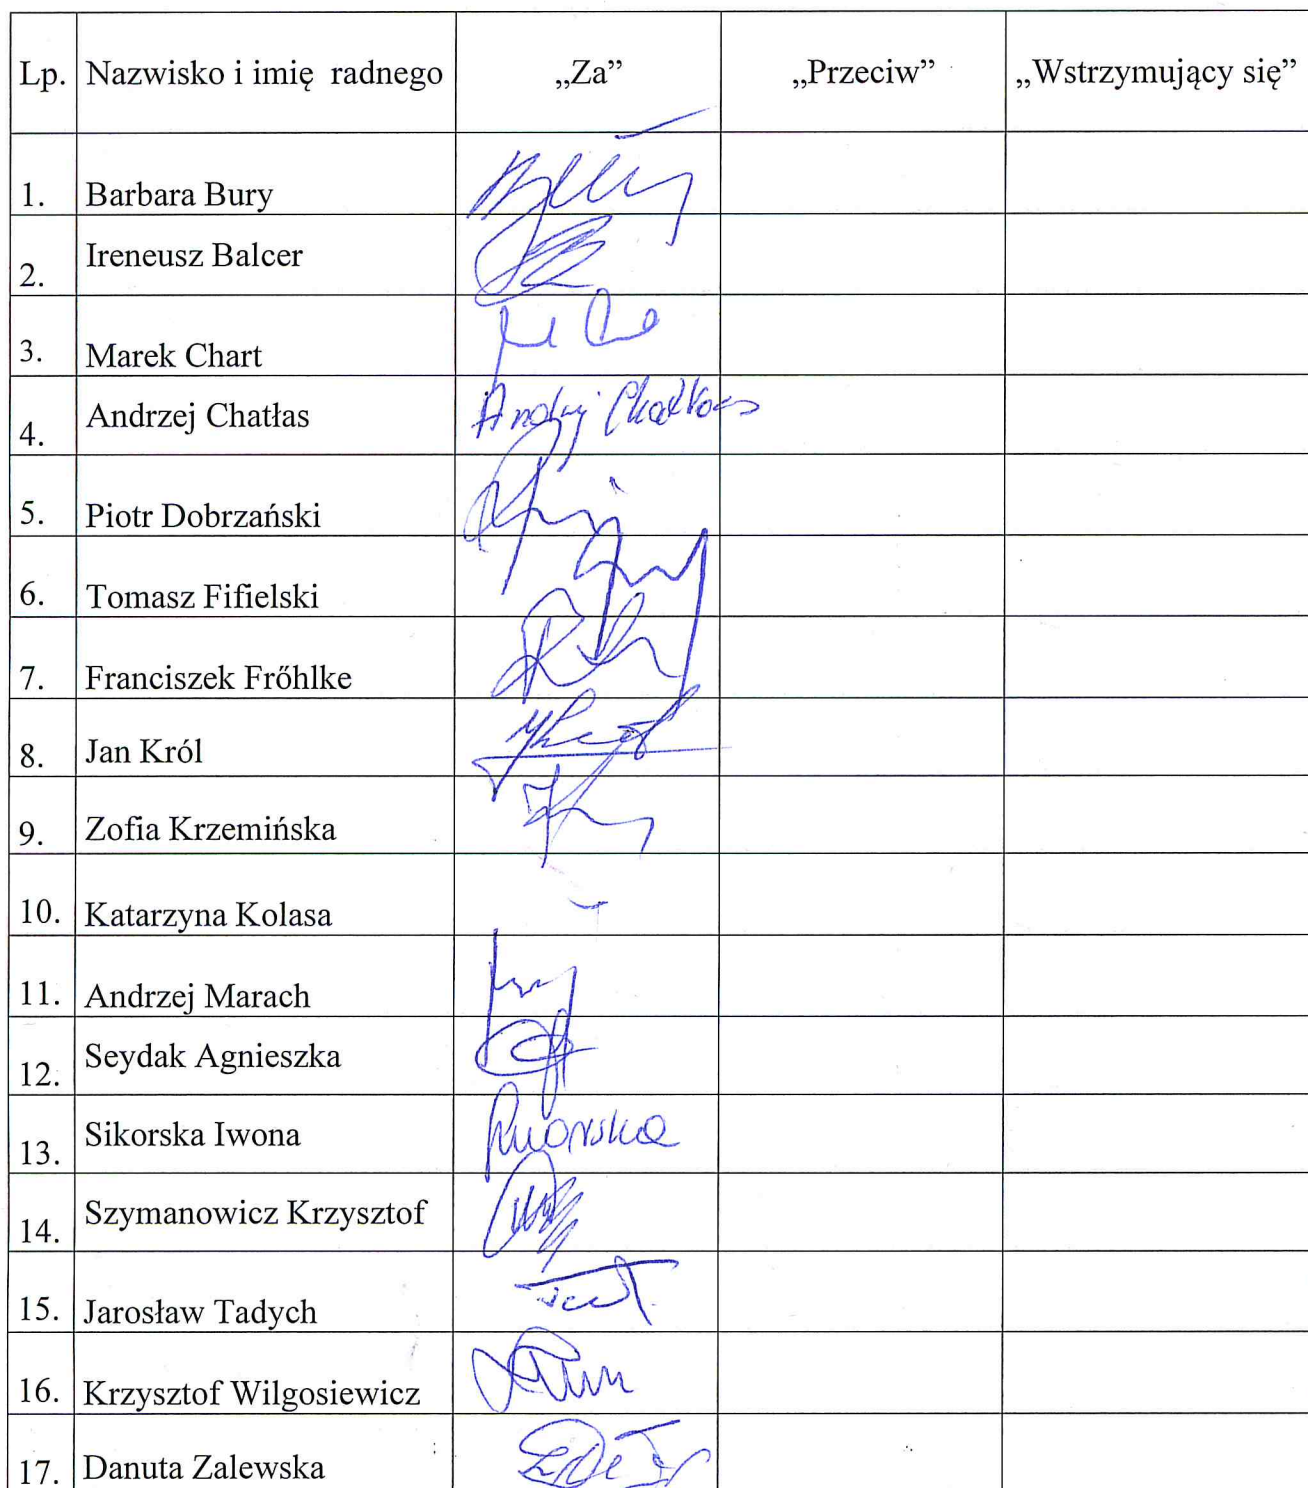 Lp. Nazwisko i imię radnego „Za” „Przeciw” „Wstrzymujący się”
1. Barbara Bury
2. Ireneusz Balcer
3. Marek Chart
4. Andrzej Chatłas Andrzej Chatłas
5. Piotr Dobrzański
6. Tomasz Fifielski
7. Franciszek Frőhlke
8. Jan Król
9. Zofia Krzemińska
10. Katarzyna Kolasa
11. Andrzej Marach
12. Seydak Agnieszka
13. Sikorska Iwona
14. Szymanowicz Krzysztof
15. Jarosław Tadych
16. Krzysztof Wilgosiewicz
17. Danuta Zalewska